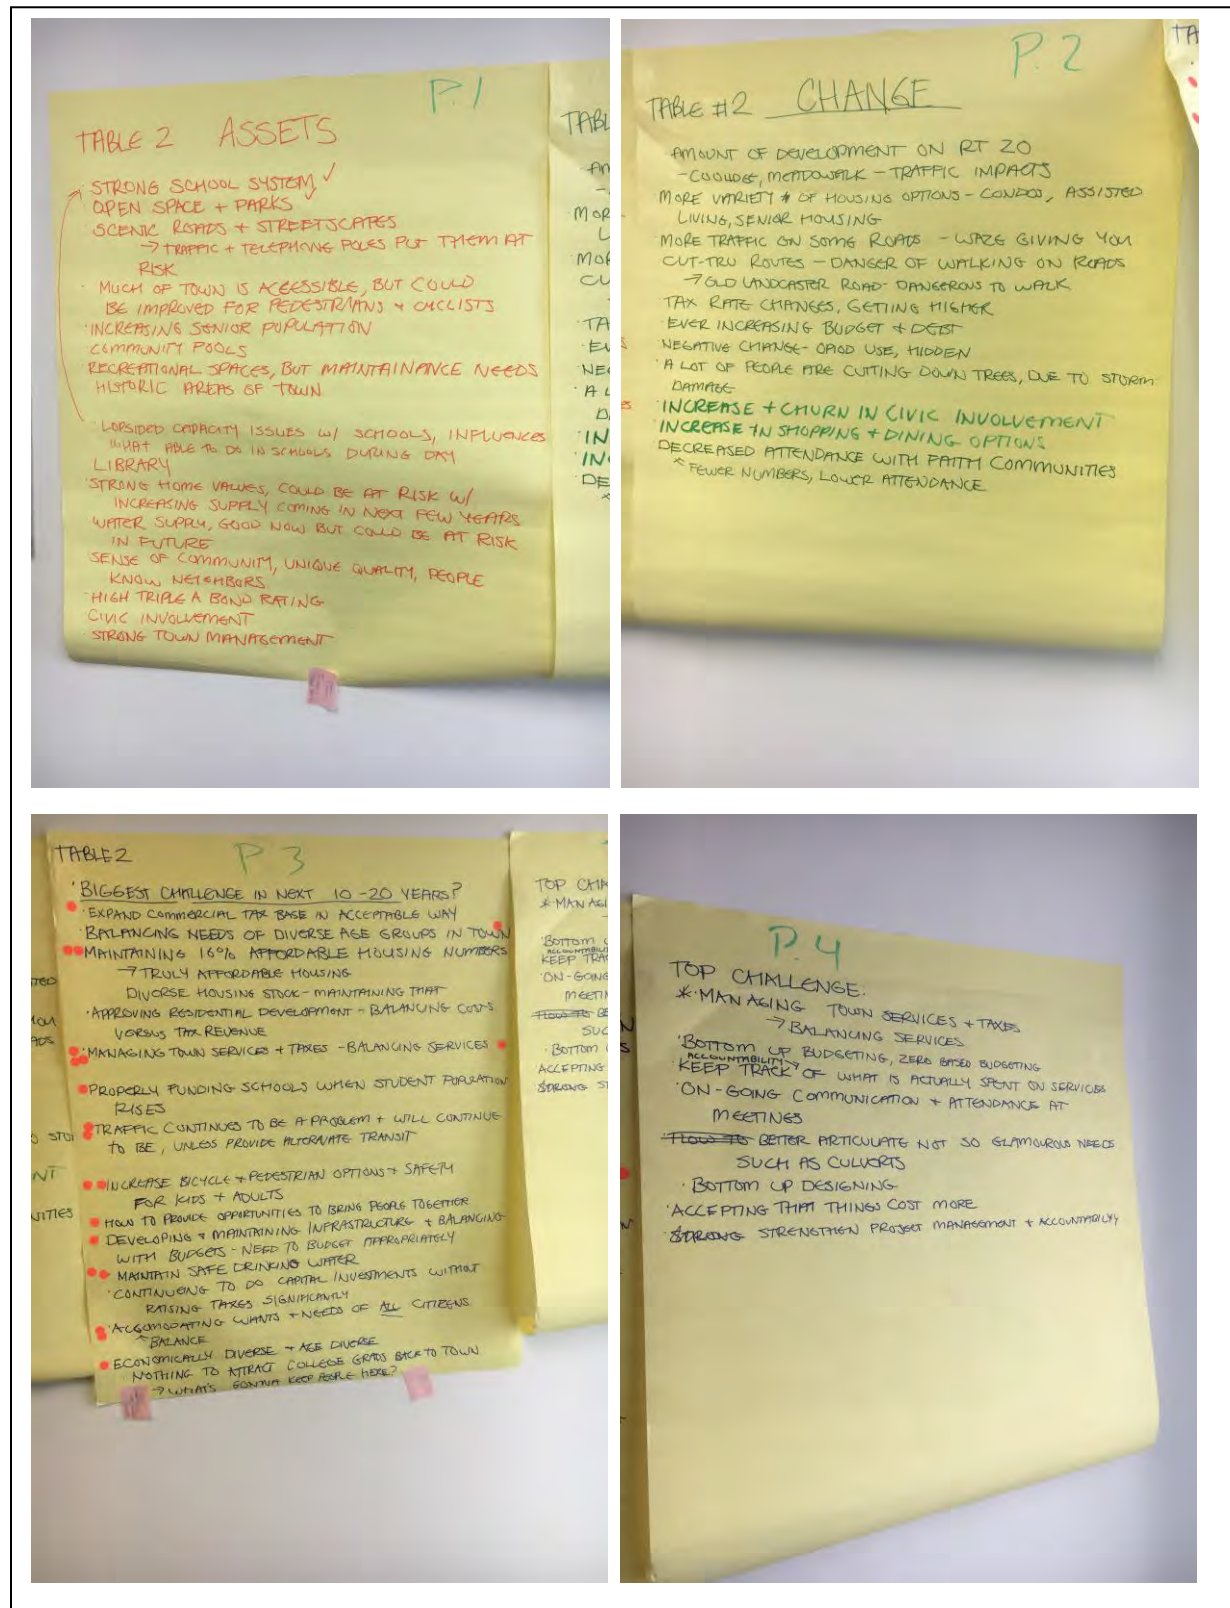 P.1
TABLE 2 ASSETS
· STRONG SCHOOL SYSTEM ✓
· OPEN SPACE + PARKS ✓
· SCENIC ROADS + STREETSCAPES
→ TRAFFIC + TELEPHONE POLES PUT THEM AT
RISK
· MUCH OF TOWN IS ACCESSIBLE, BUT COULD
BE IMPROVED FOR PEDESTRIANS + CYCLISTS
· INCREASING SENIOR POPULATION
· COMMUNITY POOLS
· RECREATIONAL SPACES, BUT MAINTAINANCE NEEDS
· HISTORIC AREAS OF TOWN
· LOPSIDED CAPACITY ISSUES W/ SCHOOLS, INFLUENCES
WHAT ABLE TO DO IN SCHOOLS DURING DAY
· LIBRARY
· STRONG HOME VALUES, COULD BE AT RISK W/
INCREASING SUPPLY COMING IN NEXT FEW YEARS
· WATER SUPPLY, GOOD NOW BUT COULD BE AT RISK
IN FUTURE
· SENSE OF COMMUNITY, UNIQUE QUALITY, PEOPLE
KNOW NEIGHBORS
· HIGH TRIPLE A BOND RATING
· CIVIC INVOLVEMENT
· STRONG TOWN MANAGEMENT
P.2
TABLE #2 CHANGE
· AMOUNT OF DEVELOPMENT ON RT 20
- COOLIDGE, MEADOWALK - TRAFFIC IMPACTS
MORE VARIETY OF HOUSING OPTIONS - CONDOS, ASSISTED
LIVING, SENIOR HOUSING
· MORE TRAFFIC ON SOME ROADS - WAZE GIVING YOU
CUT-TRU ROUTES - DANGER OF WALKING ON ROADS
→ OLD LANDCASTER ROAD - DANGEROUS TO WALK
· TAX RATE CHANGES, GETTING HIGHER
· EVER INCREASING BUDGET + DEBT
· NEGATIVE CHANGE - OPIOD USE, HIDDEN
· A LOT OF PEOPLE ARE CUTTING DOWN TREES, DUE TO STORM
DAMAGE
· INCREASE + CHURN IN CIVIC INVOLVEMENT
· INCREASE IN SHOPPING + DINING OPTIONS
DECREASED ATTENDANCE WITH FAITH COMMUNITIES
^ FEWER NUMBERS, LOWER ATTENDANCE
P 3
TABLE 2
· BIGGEST CHALLENGE IN NEXT 10-20 YEARS?
· EXPAND COMMERCIAL TAX BASE IN ACCEPTABLE WAY
· BALANCING NEEDS OF DIVERSE AGE GROUPS IN TOWN
· MAINTAINING 16% AFFORDABLE HOUSING NUMBERS
→ TRULY AFFORDABLE HOUSING
DIVERSE HOUSING STOCK - MAINTAINING THAT
· APPROVING RESIDENTIAL DEVELOPMENT - BALANCING COSTS
VERSUS TAX REVENUE
· MANAGING TOWN SERVICES + TAXES - BALANCING SERVICES
· PROPERLY FUNDING SCHOOLS WHEN STUDENT POPULATION
RISES
· TRAFFIC CONTINUES TO BE A PROBLEM + WILL CONTINUE
TO BE, UNLESS PROVIDE ALTERNATE TRANSIT
· INCREASE BICYCLE + PEDESTRIAN OPTIONS + SAFETY
FOR KIDS + ADULTS
· HOW TO PROVIDE OPPORTUNITIES TO BRING PEOPLE TOGETHER
· DEVELOPING + MAINTAINING INFRASTRUCTURE + BALANCING
WITH BUDGETS - NEED TO BUDGET APPROPRIATELY
· MAINTAIN SAFE DRINKING WATER
· CONTINUEING TO DO CAPITAL INVESTMENTS WITHOUT
RAISING TAXES SIGNIFICANTLY
· ACCOMODATING WANTS + NEEDS OF ALL CITIZENS
^ BALANCE
· ECONOMICALLY DIVERSE + AGE DIVERSE
NOTHING TO ATTRACT COLLEGE GRADS BACK TO TOWN
→ WHAT'S GONNA KEEP PEOPLE HERE?
P.4
TOP CHALLENGE.
* · MANAGING TOWN SERVICES + TAXES
→ BALANCING SERVICES
· BOTTOM UP BUDGETING, ZERO BASED BUDGETING
ACCOUNTABILITY →
· KEEP TRACK OF WHAT IS ACTUALLY SPENT ON SERVICES
· ON-GOING COMMUNICATION + ATTENDANCE AT
MEETINGS
BETTER ARTICULATE NOT SO GLAMOUROUS NEEDS
SUCH AS CULVERTS
· BOTTOM UP DESIGNING
· ACCEPTING THAT THINGS COST MORE
· STRONG STRENGTHEN PROJECT MANAGEMENT + ACCOUNTABILITY